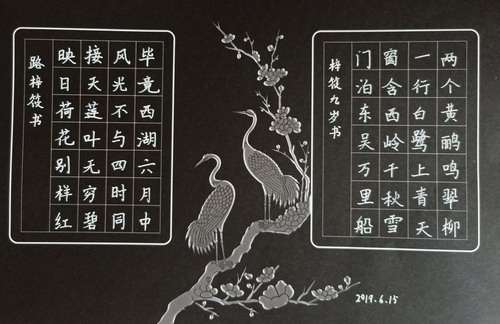 两个黄鹂鸣翠柳
一行白鹭上青天
窗含西岭千秋雪
门泊东吴万里船
梓筱九岁书
毕竟西湖六月中
风光不与四时同
接天莲叶无穷碧
映日荷花别样红
路梓筱书
2019.6.15